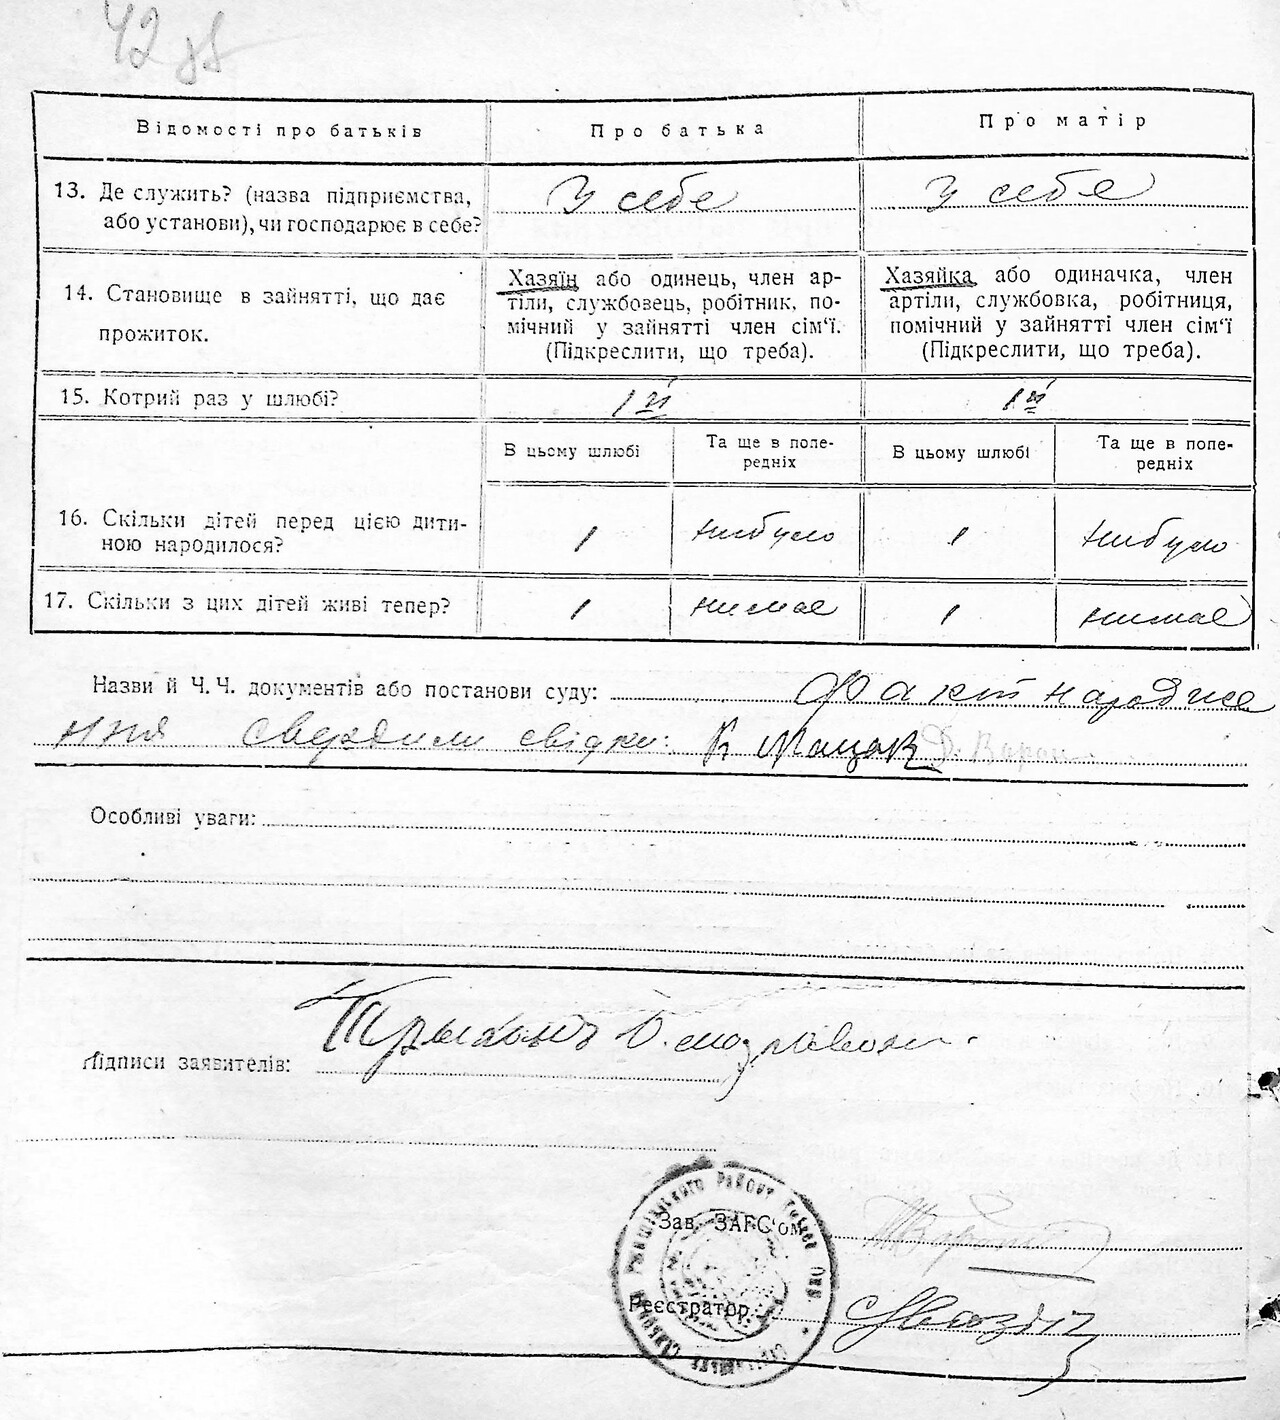 42
Відомості про батьків
Про батька
Про матір
13. Де служить? (назва підприємства,
або установи), чи господарює в себе?
У себе
У себе
14. Становище в зайнятті, що дає
прожиток.
Хазяїн або одинець, член ар-
тіли, службовець, робітник, по-
мічний у зайнятті член сім'ї.
(Підкреслити, що треба).
Хазяйка або одиначка, член
артіли, службовка, робітниця,
помічний у зайнятті член сім'ї
(Підкреслити, що треба).
15. Котрий раз у шлюбі?
1й
1й
В цьому шлюбі
Та ще в попе-
редніх
В цьому шлюбі
Та ще в попе-
редніх
16. Скільки дітей перед цією дити-
ною народилося?
1
нибуло
1
нибуло
17. Скільки з цих дітей живі тепер?
1
нимає
1
нимає
Назви й Ч. Ч. документів або постанови суду: Факт народже
ння свердили свідки: К Мацак Д. Ворон
Особливі уваги:
Підписи заявителів:
Зав. ЗАГС'ом
Реєстратор